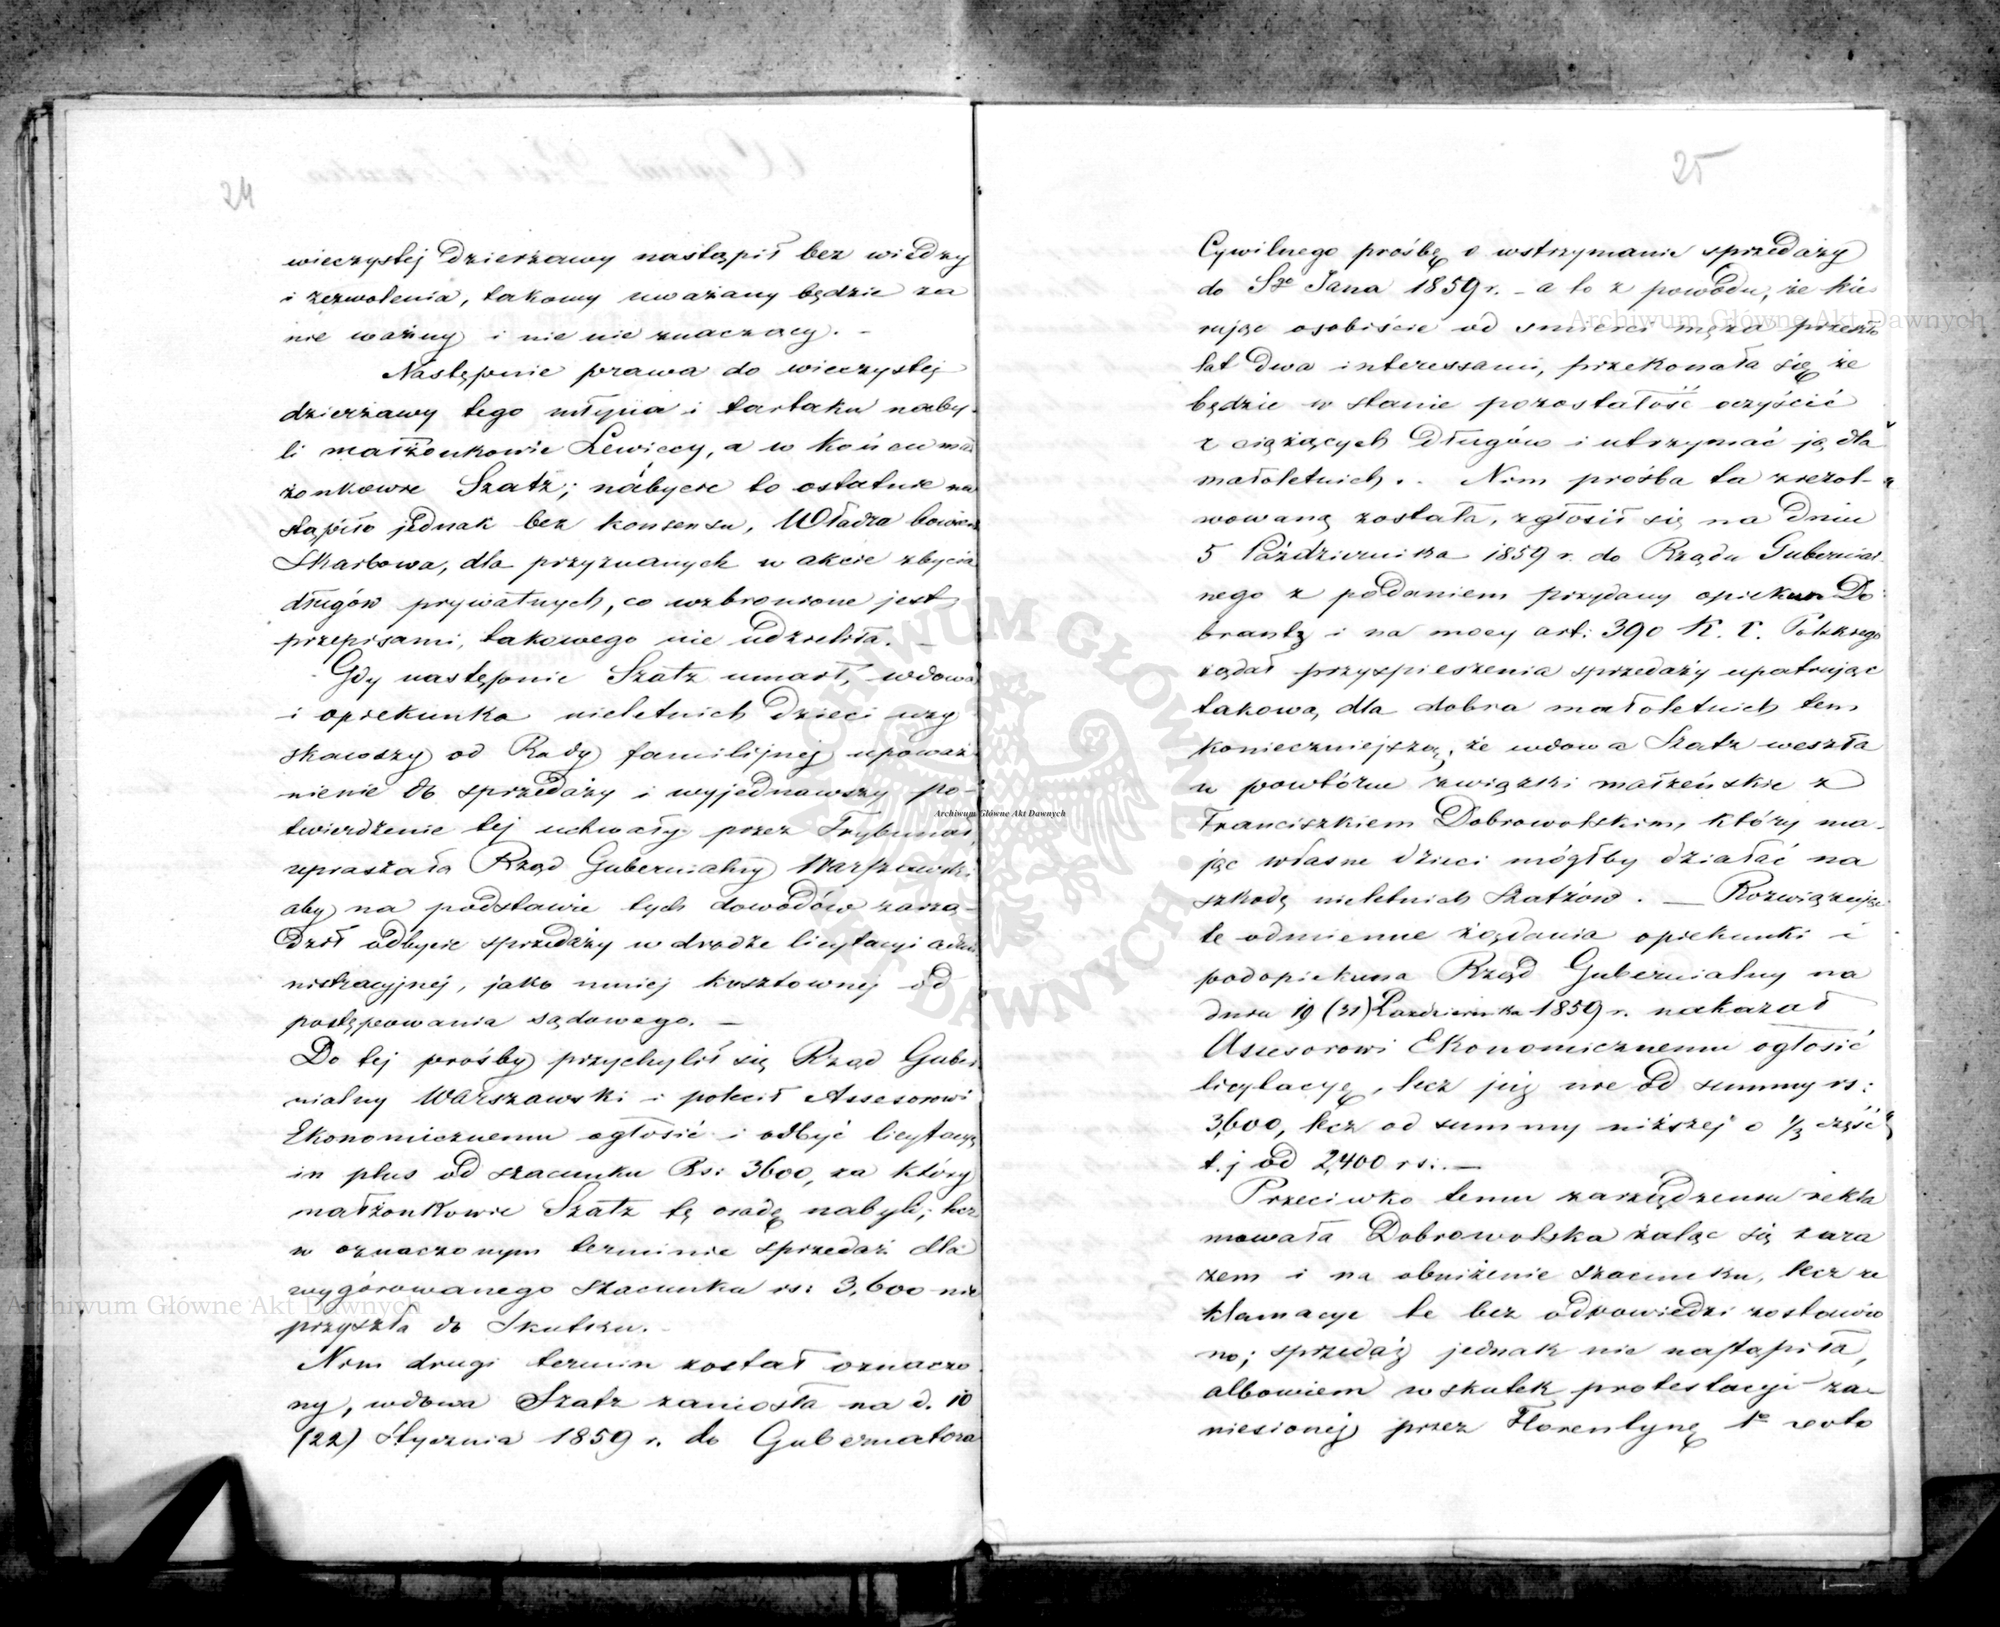 24
wieczystej dzierżawy nastąpił bez wiedzy
i zezwolenia, takowy uważany będzie za
nie ważny i nic nie znaczący. –
Następnie prawa do wieczystej
dzierżawy tego młyna i tartaku naby-
li małżonkowie Lewiccy, a w końcu mał
żonkowie Szatz; nabycie to ostatnie na
stąpiło jednak bez konsensu, Władza bowiem
Skarbowa, dla przyznanych w akcie zbycia
długów prywatnych, co wzbronione jest
przepisami, takowego nie udzieliła. –
Gdy następnie Szatz umarł, wdowa
i opiekunka nieletnich dzieci uzy
skawszy od Rady familijnej upoważ-
nienie do sprzedaży i wyjednawszy po-
twierdzenie tej uchwały przez Trybunał,
upraszała Rząd Gubernialny Warszawski
aby na podstawie tych dowodów zarzą-
dził odbycie sprzedaży w drodze licytacyi admi
nistracyjnej, jako mniej kosztownej od
postępowania sądowego. —
Do tej prośby przychylił się Rząd Guber
nialny Warszawski i polecił Assesorowi
Ekonomicznemu ogłosić i odbyć licytacyą
in plus od szacunku Rs: 3600, za który
małżonkowie Szatz tę osadę nabyli; lecz
w oznaczonym terminie sprzedaż dla
wygórowanego szacunku rs: 3,600 nie
przyszła do skutku. –
Nim drugi termin został oznaczo
ny, wdowa Szatz zaniosła na d. 10
(22) Stycznia 1859 r. do Gubernatora
25
Cywilnego prośbę o wstrzymanie sprzedaży
do Sgo Jana 1859 r. – a to z powodu, że kie-
rując osobiście od śmierci męża przeszło
lat dwa interessami, przekonała się że
będzie w stanie pozostałość oczyścić
z ciążących długów i utrzymać ją dla
małoletnich. . Nim prośba ta zrezol-
wowaną została, zgłosił się na dniu
5 Października 1859 r. do Rządu Gubernial-
nego z podaniem przydany opiekun Do-
brantz i na mocy art: 390 K. C. Polskiego
żądał przyspieszenia sprzedaży upatrując
takową, dla dobra małoletnich tem
konieczniejszą, że wdowa Szatz weszła
w powtórne związki małżeńskie z
Franciszkiem Dobrowolskim, który ma-
jąc własne dzieci mógłby działać na
szkodę nieletnich Szatzów. — Rozwiązując
te odmienne żądania opiekunki i
podopiekuna Rząd Gubernialny na
dniu 19 (31) Października 1859 r. nakazał
Assesorowi Ekonomicznemu ogłosić
licytacyę, lecz już nie od summy rs:
3,600, lecz od summy niższej o 1/3 część
t. j od 2,400 rs: . —
Przeciwko temu zarządzeniu rekla
mowała Dobrowolska żaląc się zara
zem i na obniżenie szacunku, lecz re
klamacye te bez odpowiedzi zostawio
no; sprzedaż jednak nie nastąpiła,
albowiem wskutek protestacyi za-
niesionej przez Florentynę 1o voto
Archiwum Główne Akt Dawnych
Archiwum Główne Akt Dawnych
Archiwum Główne Akt Dawnych
ARCHIWUM GŁÓWNE AKT DAWNYCH